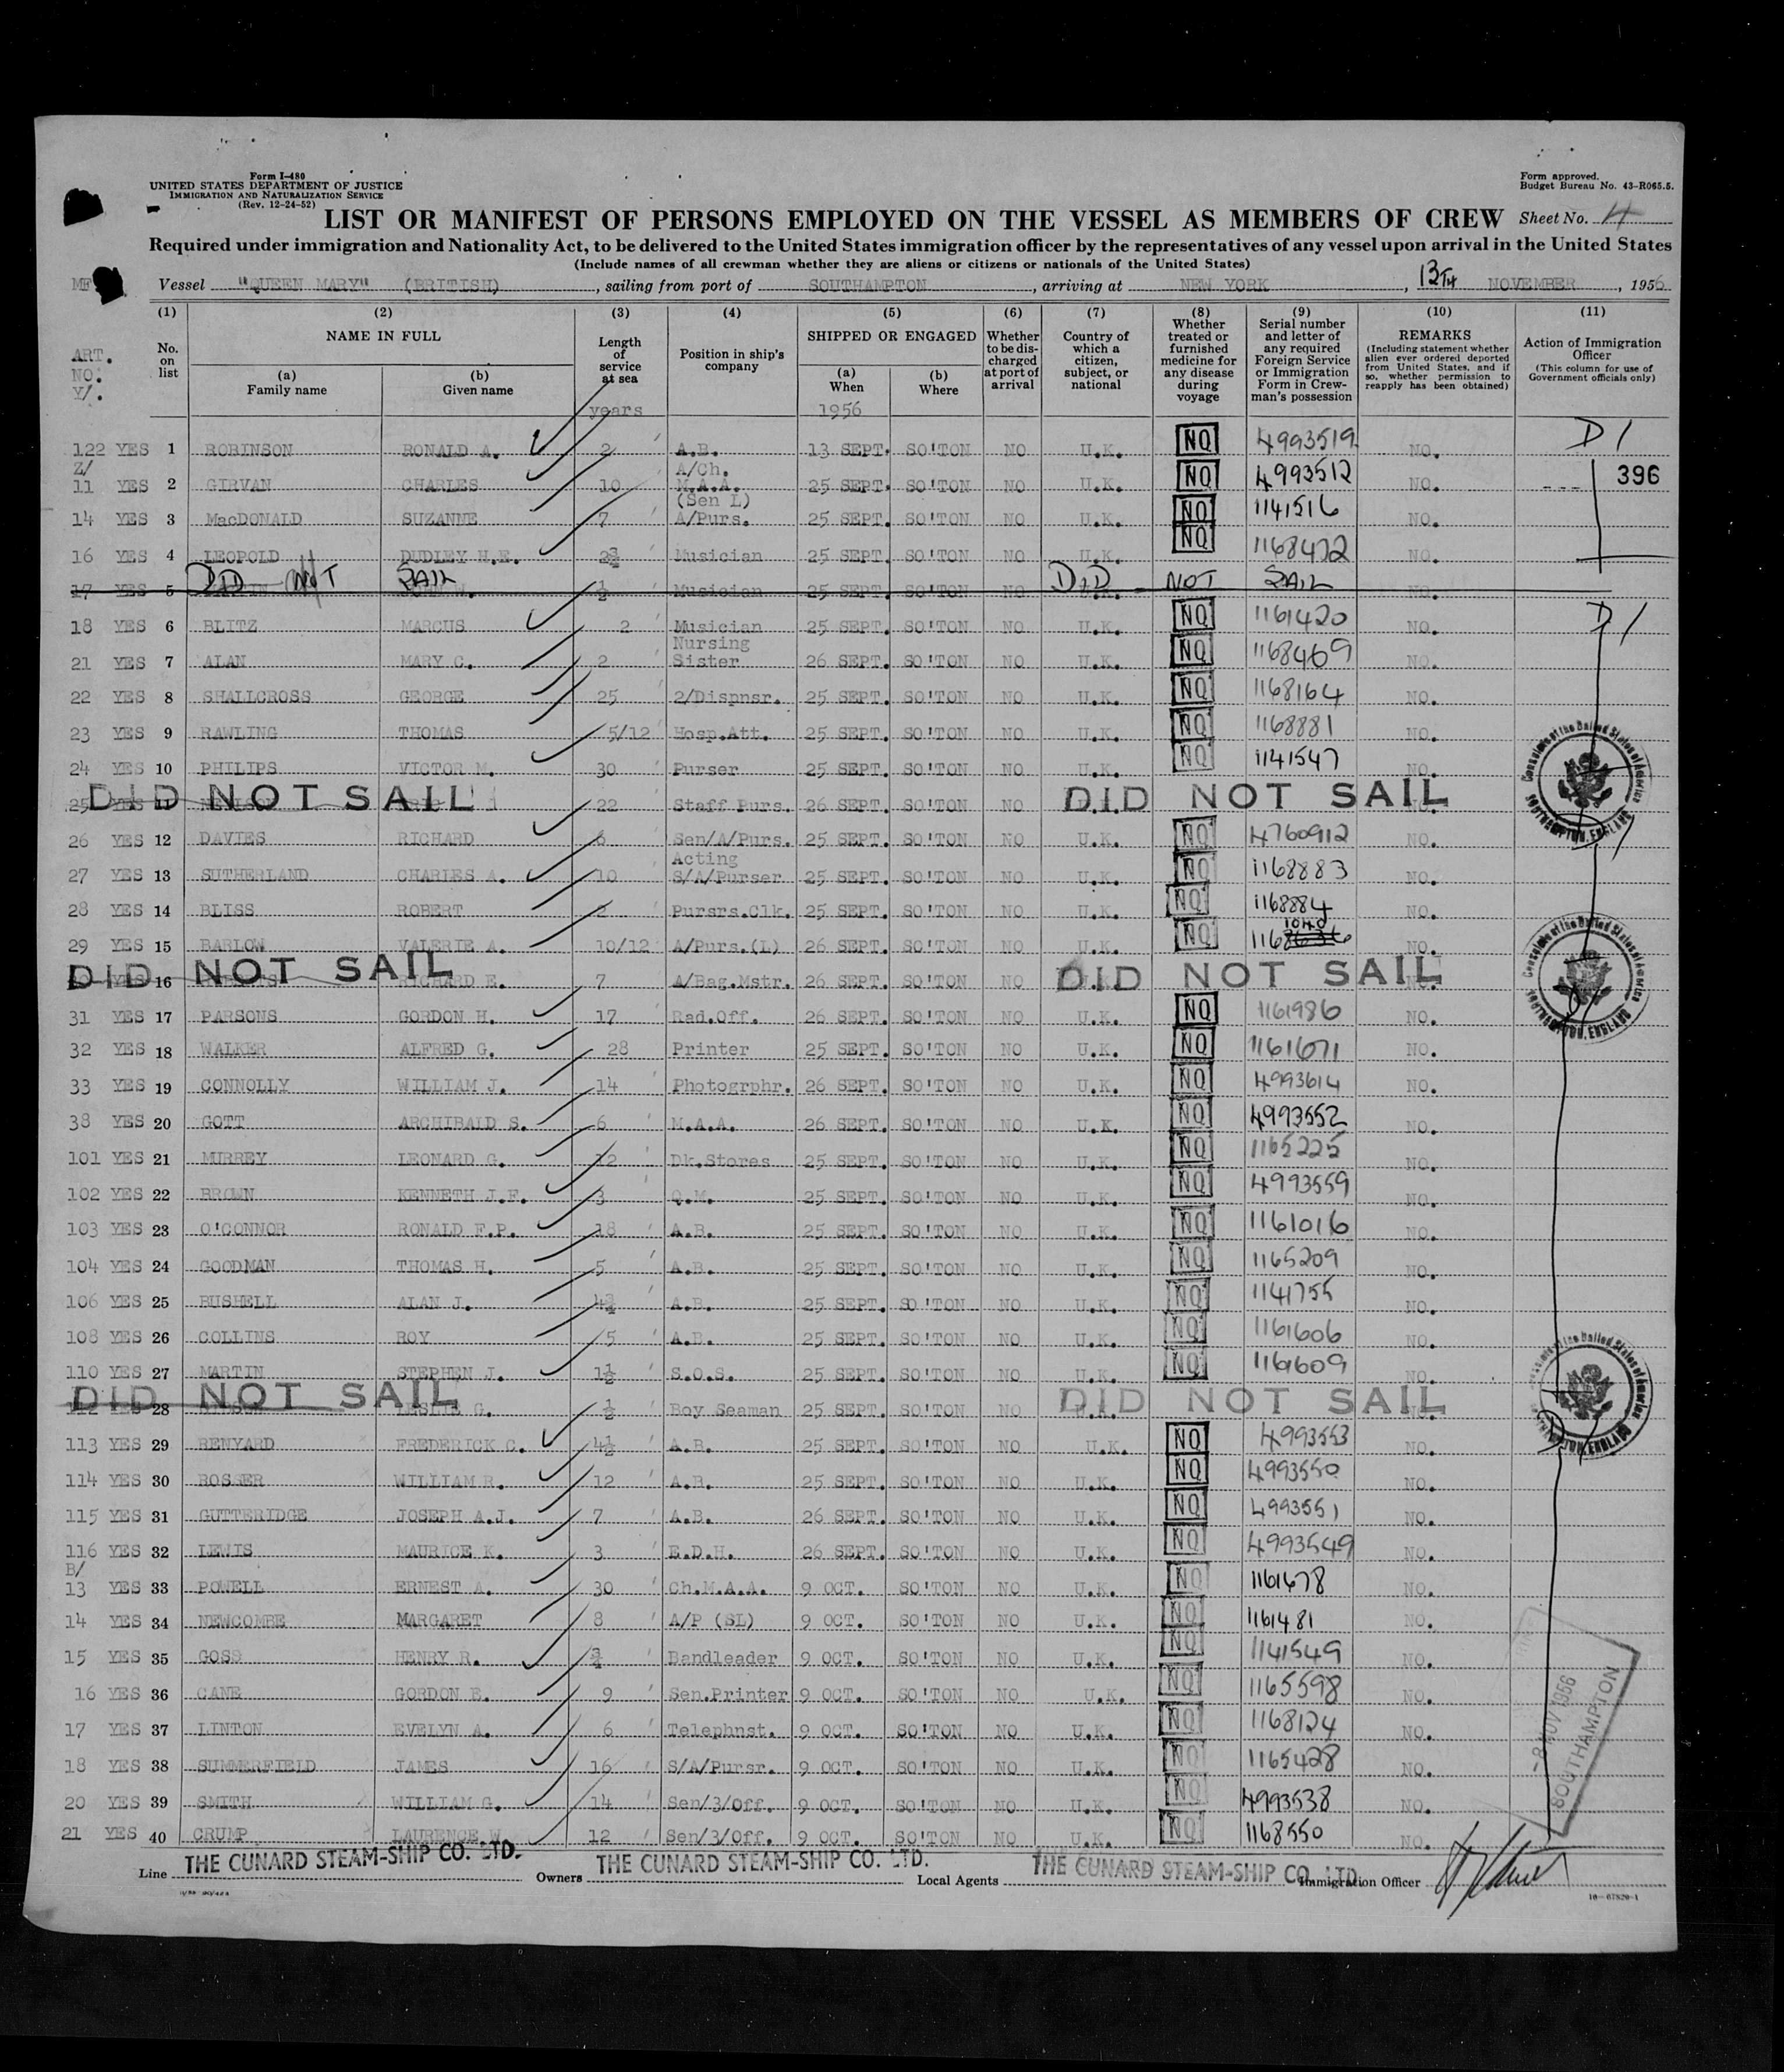 Form I-480
UNITED STATES DEPARTMENT OF JUSTICE
IMMIGRATION AND NATURALIZATION SERVICE
(Rev. 12-24-52)
Form approved.
Budget Bureau No. 43-R065.5.
LIST OR MANIFEST OF PERSONS EMPLOYED ON THE VESSEL AS MEMBERS OF CREW Sheet No. 4
Required under immigration and Nationality Act, to be delivered to the United States immigration officer by the representatives of any vessel upon arrival in the United States
(Include names of all crewman whether they are aliens or citizens or nationals of the United States)
Vessel "QUEEN MARY" (BRITISH), sailing from port of SOUTHAMPTON, arriving at NEW YORK, 13TH NOVEMBER, 1956
(1) (2) (3) (4) (5) (6) (7) (8) (9) (10) (11)
ART. NO: Y/.
No. on list
NAME IN FULL
(a) Family name
(b) Given name
Length of service at sea
years
Position in ship's company
SHIPPED OR ENGAGED
(a) When
1956
(b) Where
Whether to be discharged at port of arrival
Country of which a citizen, subject, or national
Whether treated or furnished medicine for any disease during voyage
Serial number and letter of any required Foreign Service or Immigration Form in Crewman's possession
REMARKS
(Including statement whether alien ever ordered deported from United States, and if so, whether permission to reapply has been obtained)
Action of Immigration Officer
(This column for use of Government officials only)
122 YES 1 ROBINSON RONALD A. 2 A.B. 13 SEPT. SO'TON NO U.K. NO 4993519 NO. D1
Z/ A/Ch.
11 YES 2 GIRVAN CHARLES 10 M.A.A. 25 SEPT. SO'TON NO U.K. NO 4993512 NO. 396
(Sen L)
14 YES 3 MacDONALD SUZANNE 7 A/Purs. 25 SEPT. SO'TON NO U.K. NO 1141516 NO.
16 YES 4 LEOPOLD DUDLEY H.E. 2¾ Musician 25 SEPT. SO'TON NO U.K. NO 1168472 NO.
17 YES 5 DID NOT SAIL ½ Musician 25 SEPT. SO'TON NO DID NOT SAIL NO.
18 YES 6 BLITZ MARCUS 2 Musician 25 SEPT. SO'TON NO U.K. NO 1161420 NO. D1
Nursing
21 YES 7 ALAN MARY C. 2 Sister 26 SEPT. SO'TON NO U.K. NO 1168469 NO.
22 YES 8 SHALLCROSS GEORGE 25 2/Dispnsr. 25 SEPT. SO'TON NO U.K. NO 1168164 NO.
23 YES 9 RAWLING THOMAS 5/12 Hosp.Att. 25 SEPT. SO'TON NO U.K. NO 1168881 NO.
24 YES 10 PHILIPS VICTOR M. 30 Purser 25 SEPT. SO'TON NO U.K. NO 1141547 NO.
25 DID NOT SAIL 22 Staff Purs. 26 SEPT. SO'TON NO DID NOT SAIL
26 YES 12 DAVIES RICHARD 6 Sen/A/Purs. 25 SEPT. SO'TON NO U.K. NO 4760912 NO. D1
Acting
27 YES 13 SUTHERLAND CHARLES A. 10 S/A/Purser 25 SEPT. SO'TON NO U.K. NO 1168883 NO.
28 YES 14 BLISS ROBERT 2 Pursrs.Clk. 25 SEPT. SO'TON NO U.K. NO 1168884 NO.
29 YES 15 BARLOW VALERIE A. 10/12 A/Purs.(L) 26 SEPT. SO'TON NO U.K. NO 116 1040 NO.
DID NOT SAIL 16 RICHARD E. 7 A/Bag.Mstr. 26 SEPT. SO'TON NO DID NOT SAIL
31 YES 17 PARSONS GORDON H. 17 Rad.Off. 26 SEPT. SO'TON NO U.K. NO 1161986 NO. D1
32 YES 18 WALKER ALFRED G. 28 Printer 25 SEPT. SO'TON NO U.K. NO 1161671 NO.
33 YES 19 CONNOLLY WILLIAM J. 14 Photogrphr. 26 SEPT. SO'TON NO U.K. NO 4993614 NO.
38 YES 20 GOTT ARCHIBALD S. 6 M.A.A. 26 SEPT. SO'TON NO U.K. NO 4993552 NO.
101 YES 21 MIRREY LEONARD G. 12 Dk.Stores 25 SEPT. SO'TON NO U.K. NO 1165225 NO.
102 YES 22 BROWN KENNETH J.F. 3 Q.M. 25 SEPT. SO'TON NO U.K. NO 4993559 NO.
103 YES 23 O'CONNOR RONALD F.P. 18 A.B. 25 SEPT. SO'TON NO U.K. NO 1161016 NO.
104 YES 24 GOODMAN THOMAS H. 5 A.B. 25 SEPT. SO'TON NO U.K. NO 1165209 NO.
106 YES 25 BUSHELL ALAN J. 4¾ A.B. 25 SEPT. SO'TON NO U.K. NO 1141755 NO.
108 YES 26 COLLINS ROY 5 A.B. 25 SEPT. SO'TON NO U.K. NO 1161606 NO.
110 YES 27 MARTIN STEPHEN J. 1½ S.O.S. 25 SEPT. SO'TON NO U.K. NO 1161609 NO.
DID NOT SAIL 28 LESLIE G. ½ Boy Seaman 25 SEPT. SO'TON NO DID NOT SAIL
113 YES 29 RENYARD FREDERICK C. 4½ A.B. 25 SEPT. SO'TON NO U.K. NO 4993553 NO. D1
114 YES 30 ROSSER WILLIAM R. 12 A.B. 25 SEPT. SO'TON NO U.K. NO 4993550 NO.
115 YES 31 GUTTERIDGE JOSEPH A.J. 7 A.B. 26 SEPT. SO'TON NO U.K. NO 4993551 NO.
116 YES 32 LEWIS MAURICE K. 3 E.D.H. 26 SEPT. SO'TON NO U.K. NO 4993549 NO.
B/
13 YES 33 POWELL ERNEST A. 30 Ch.M.A.A. 9 OCT. SO'TON NO U.K. NO 1161678 NO.
14 YES 34 NEWCOMBE MARGARET 8 A/P (SL) 9 OCT. SO'TON NO U.K. NO 1161481 NO.
15 YES 35 GOSS HENRY R. ¾ Bandleader 9 OCT. SO'TON NO U.K. NO 1141549 NO.
16 YES 36 CANE GORDON E. 9 Sen.Printer 9 OCT. SO'TON NO U.K. NO 1165598 NO.
17 YES 37 LINTON EVELYN A. 6 Telephnst. 9 OCT. SO'TON NO U.K. NO 1168124 NO.
18 YES 38 SUMMERFIELD JAMES 16 S/A/Pursr. 9 OCT. SO'TON NO U.K. NO 1165428 NO.
20 YES 39 SMITH WILLIAM G. 14 Sen/3/Off. 9 OCT. SO'TON NO U.K. NO 4993538 NO.
21 YES 40 CRUMP LAURENCE W. 12 Sen/3/Off. 9 OCT. SO'TON NO U.K. NO 1168550 NO.
-8 NOV 1956
SOUTHAMPTON
Line THE CUNARD STEAM-SHIP CO. LTD. Owners THE CUNARD STEAM-SHIP CO. LTD. Local Agents THE CUNARD STEAM-SHIP CO. LTD. Immigration Officer
16-67820-1